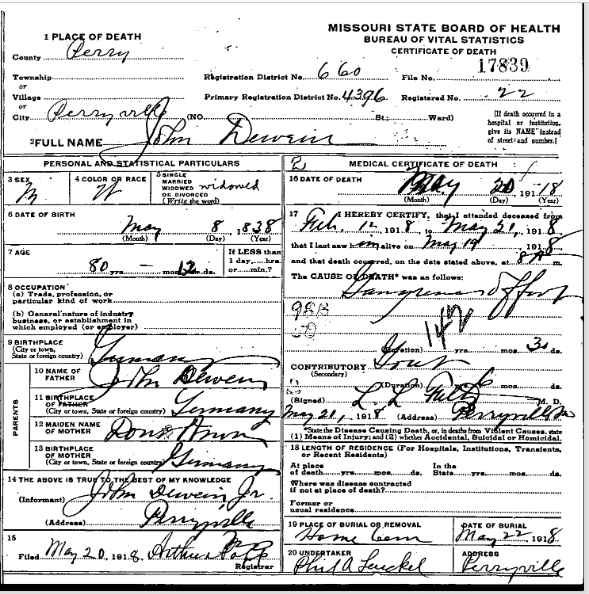 MISSOURI STATE BOARD OF HEALTH
BUREAU OF VITAL STATISTICS
CERTIFICATE OF DEATH
1 PLACE OF DEATH
County Perry
Township
or
Village
or
City Perryville (NO. St.; Ward)
Registration District No. 660 File No. 17839
Primary Registration District No. 4396 Registered No. 22
[If death occurred in a
hospital or institution,
give its NAME instead
of street and number.]
2 FULL NAME John Dewein
PERSONAL AND STATISTICAL PARTICULARS
3 SEX M
4 COLOR OR RACE W
5 SINGLE
MARRIED
WIDOWED widowed
OR DIVORCED
(Write the word)
6 DATE OF BIRTH May 8, 838
(Month) (Day) (Year)
7 AGE 80 yrs. — mos. 12 ds.
If LESS than
1 day, hrs.
or min.?
8 OCCUPATION
(a) Trade, profession, or
particular kind of work
(b) General nature of industry
business, or establishment in
which employed (or employer)
9 BIRTHPLACE Germany
(City or town,
State or foreign country)
PARENTS
10 NAME OF
FATHER John Dewein
11 BIRTHPLACE
OF FATHER Germany
(City or town, State or foreign country)
12 MAIDEN NAME
OF MOTHER Dont know
13 BIRTHPLACE
OF MOTHER Germany
(City or town, State or foreign country)
14 THE ABOVE IS TRUE TO THE BEST OF MY KNOWLEDGE
(Informant) John Dewein Jr.
(Address) Perryville
15
Filed May 20, 1918, Arthur
Registrar
MEDICAL CERTIFICATE OF DEATH
16 DATE OF DEATH May 20 1918
(Month) (Day) (Year)
17 I HEREBY CERTIFY, that I attended deceased from
Feb. 12 1918 to May 21, 1918
that I last saw him alive on May 19 1918
and that death occurred, on the date stated above, at 8 m.
The CAUSE OF DEATH* was as follows:
Gangrene of foot
142
(Duration) yrs. mos. 30 ds.
CONTRIBUTORY
(Secondary)
(Duration) yrs. mos. ds.
(Signed) M. D.
May 21, 1918 (Address) Perryville Mo
*State the Disease Causing Death, or, in deaths from Violent Causes, state
(1) Means of Injury; and (2) whether Accidental, Suicidal or Homicidal.
18 LENGTH OF RESIDENCE (For Hospitals, Institutions, Transients,
or Recent Residents)
At place In the
of death yrs. mos. ds. State yrs. mos. ds.
Where was disease contracted
if not at place of death?
Former or
usual residence
19 PLACE OF BURIAL OR REMOVAL DATE OF BURIAL
Home Cem May 22 1918
20 UNDERTAKER ADDRESS
Phil A Leuckel Perryville